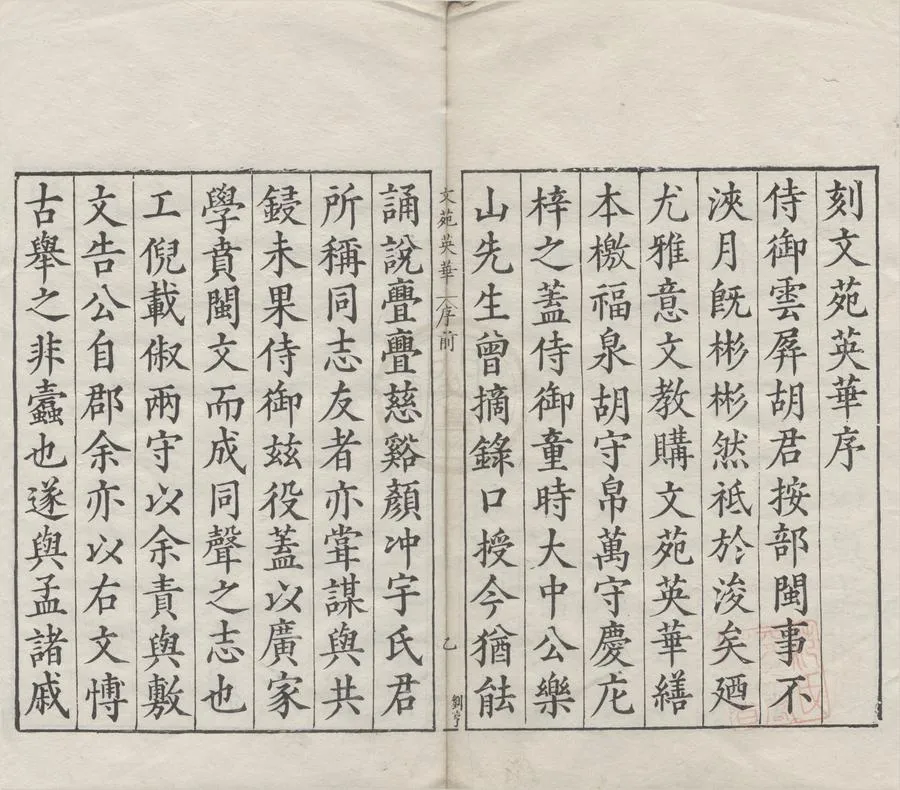 刻文苑英華序
侍御雲屏胡君按部閩事不
浹月既彬彬然祗於浚矣廼
尤雅意文教購文苑英華繕
本檄福泉胡守帛萬守慶庀
梓之蓋侍御童時大中公樂
山先生曾摘錄口授今猶能
文苑英華 序前 乙 劉亨
誦說亹亹慈谿顏冲宇氏君
所稱同志友者亦甞謀與共
鋟未果侍御兹役蓋以廣家
學賁閩文而成同聲之志也
工倪載俶兩守以余責與敷
文告公自郡余亦以右文愽
古舉之非蠹也遂與孟諸戚